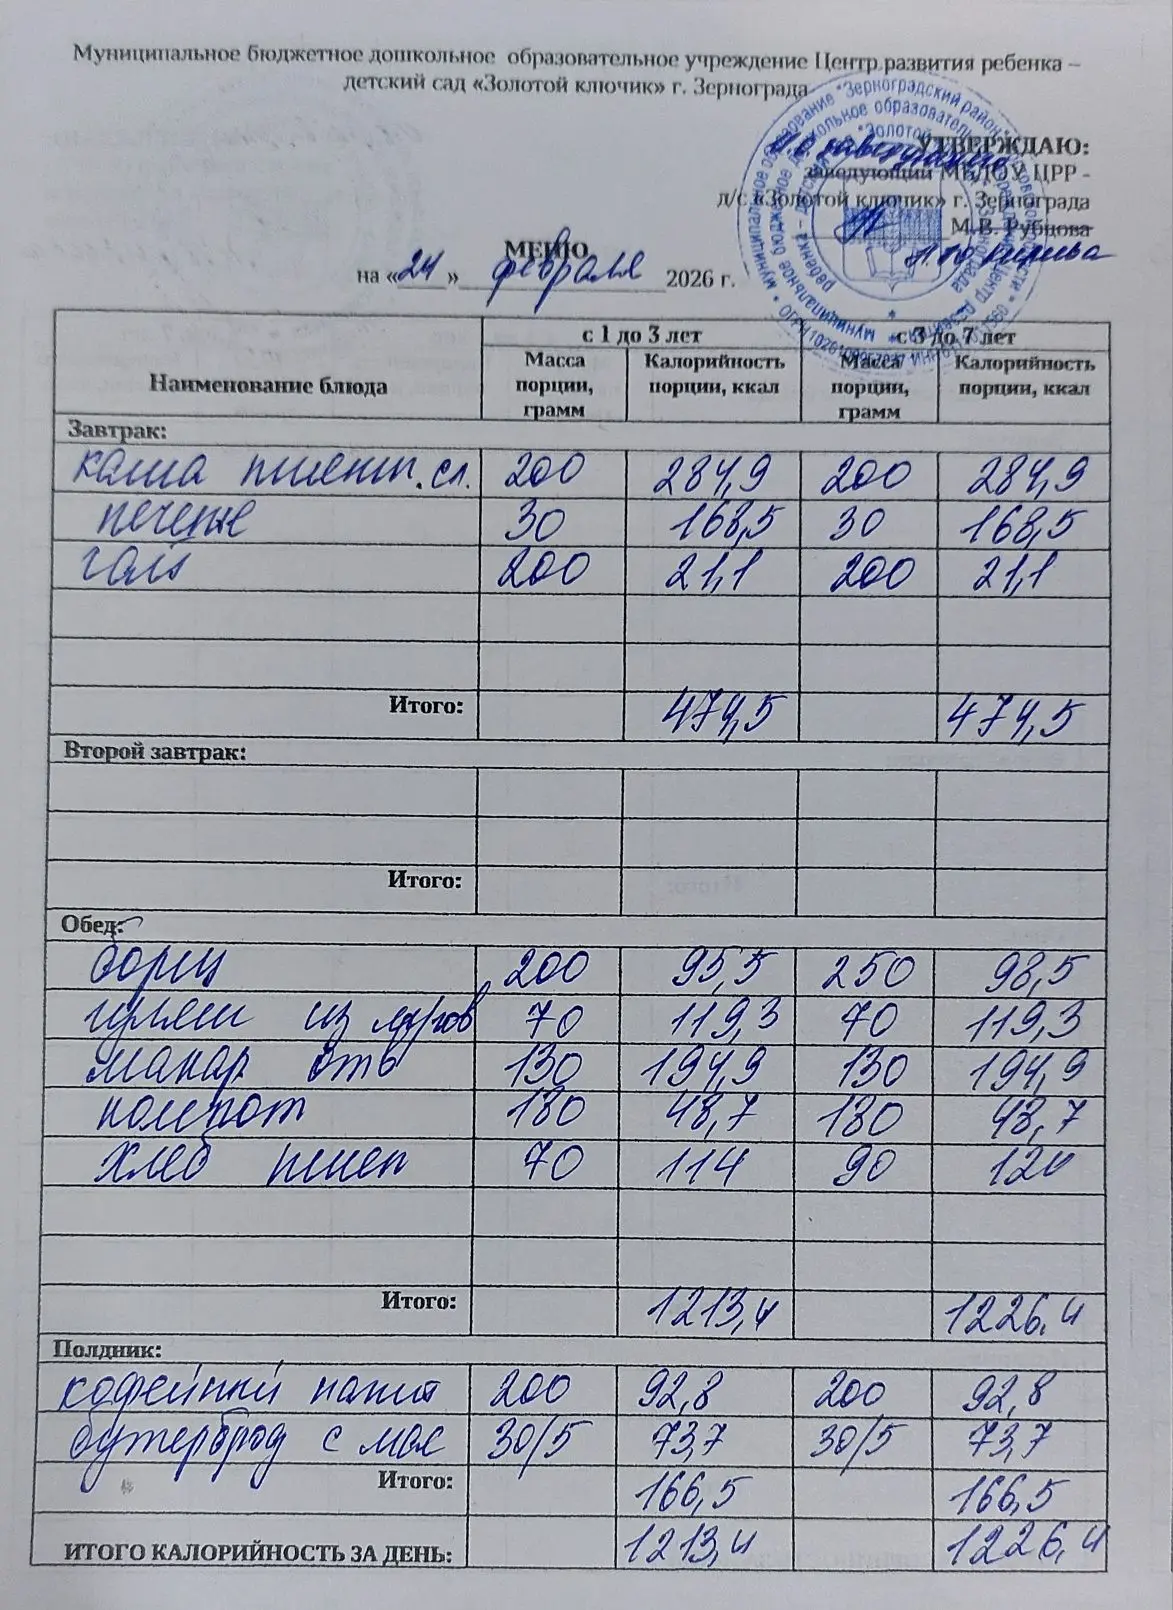 Муниципальное бюджетное дошкольное образовательное учреждение Центр развития ребенка –
детский сад «Золотой ключик» г. Зернограда
УТВЕРЖДАЮ:
заведующий МБДОУ ЦРР -
д/с «Золотой ключик» г. Зернограда
М.В. Рубцова
МЕНЮ
на «24» февраля 2026 г.
Наименование блюда с 1 до 3 лет с 3 до 7 лет
Масса порции, грамм Калорийность порции, ккал Масса порции, грамм Калорийность порции, ккал
Завтрак:
каша пшенн. сл. 200 284,9 200 284,9
печенье 30 168,5 30 168,5
чай 200 21,1 200 21,1
Итого: 474,5 474,5
Второй завтрак:
Итого:
Обед:
борщ 200 95,5 250 98,5
гуляш из 70 119,3 70 119,3
макар отв 130 194,9 130 194,9
компот 180 48,7 180 48,7
хлеб пшен 70 114 90 124
Итого: 1213,4 1226,4
Полдник:
кофейный напит 200 92,8 200 92,8
бутерброд с мас 30/5 73,7 30/5 73,7
Итого: 166,5 166,5
ИТОГО КАЛОРИЙНОСТЬ ЗА ДЕНЬ: 1213,4 1226,4